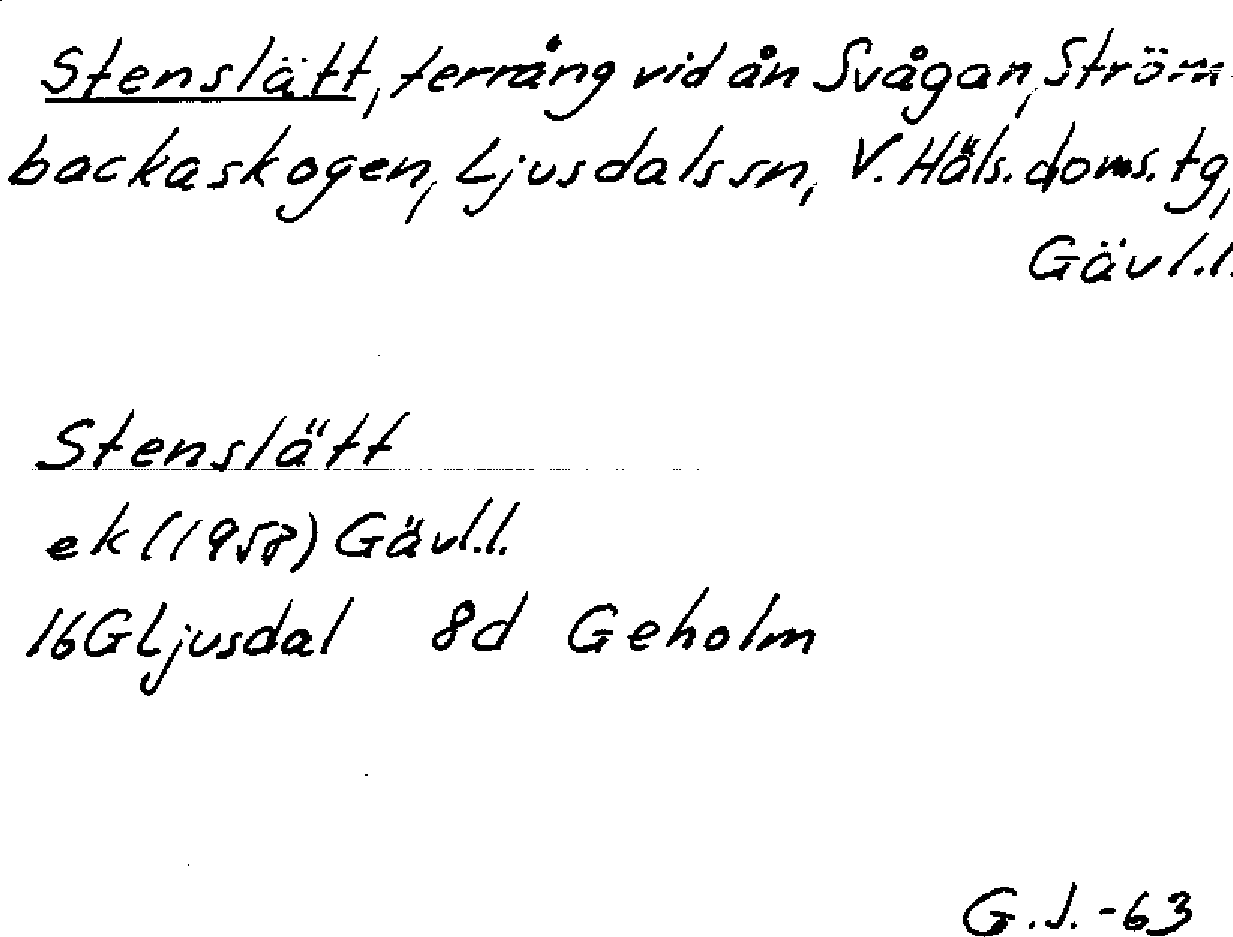 Stenslätt, terräng vid ån Svågan, Ström-
backaskogen, Ljusdals sn, V. Häls. doms. tg,
Gävl.l.
Stenslätt
ek (1958) Gävl.l.
16G Ljusdal 8d Geholm
G.J.-63